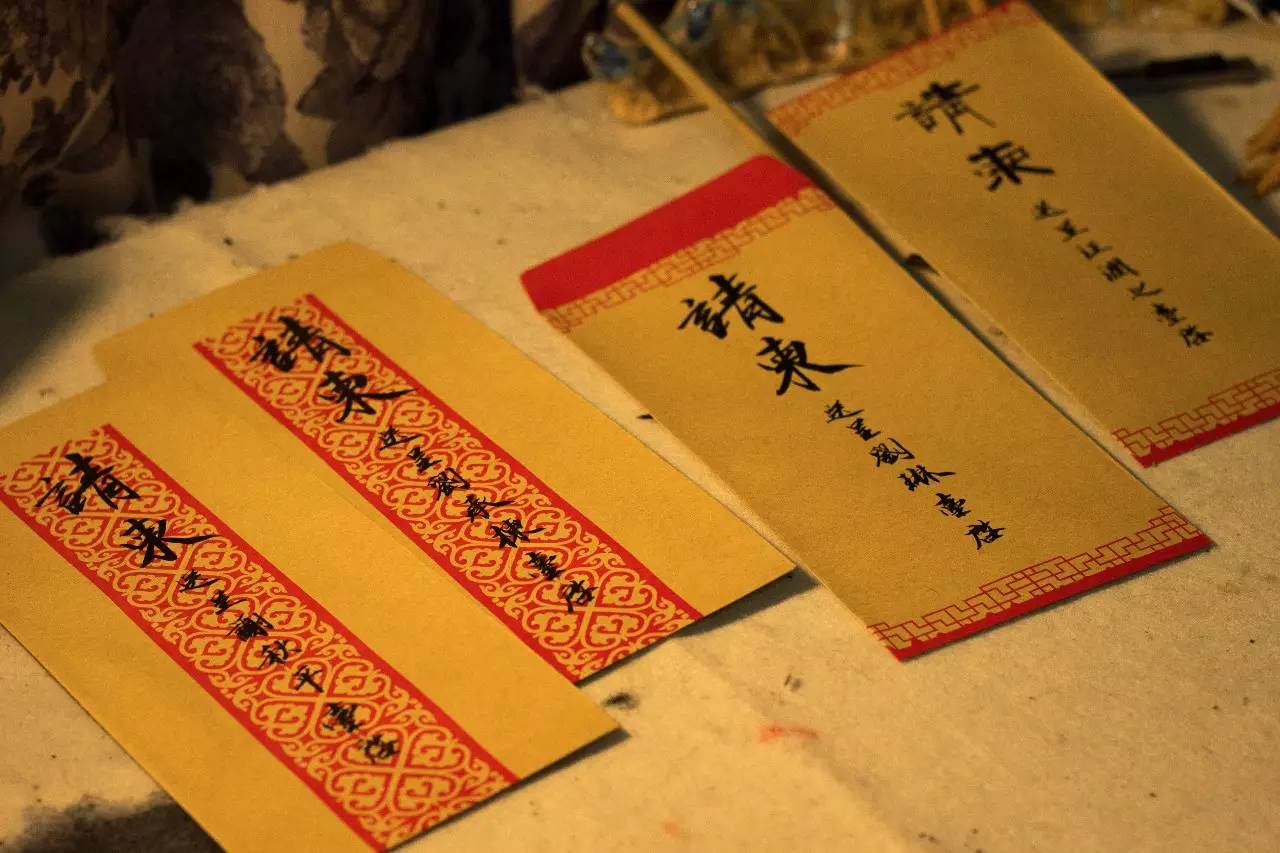 請柬
送呈謝秋平臺啓
請柬
送呈劉承臺啓
請柬
送呈劉琳臺啓
請柬
送呈江湖臺啓